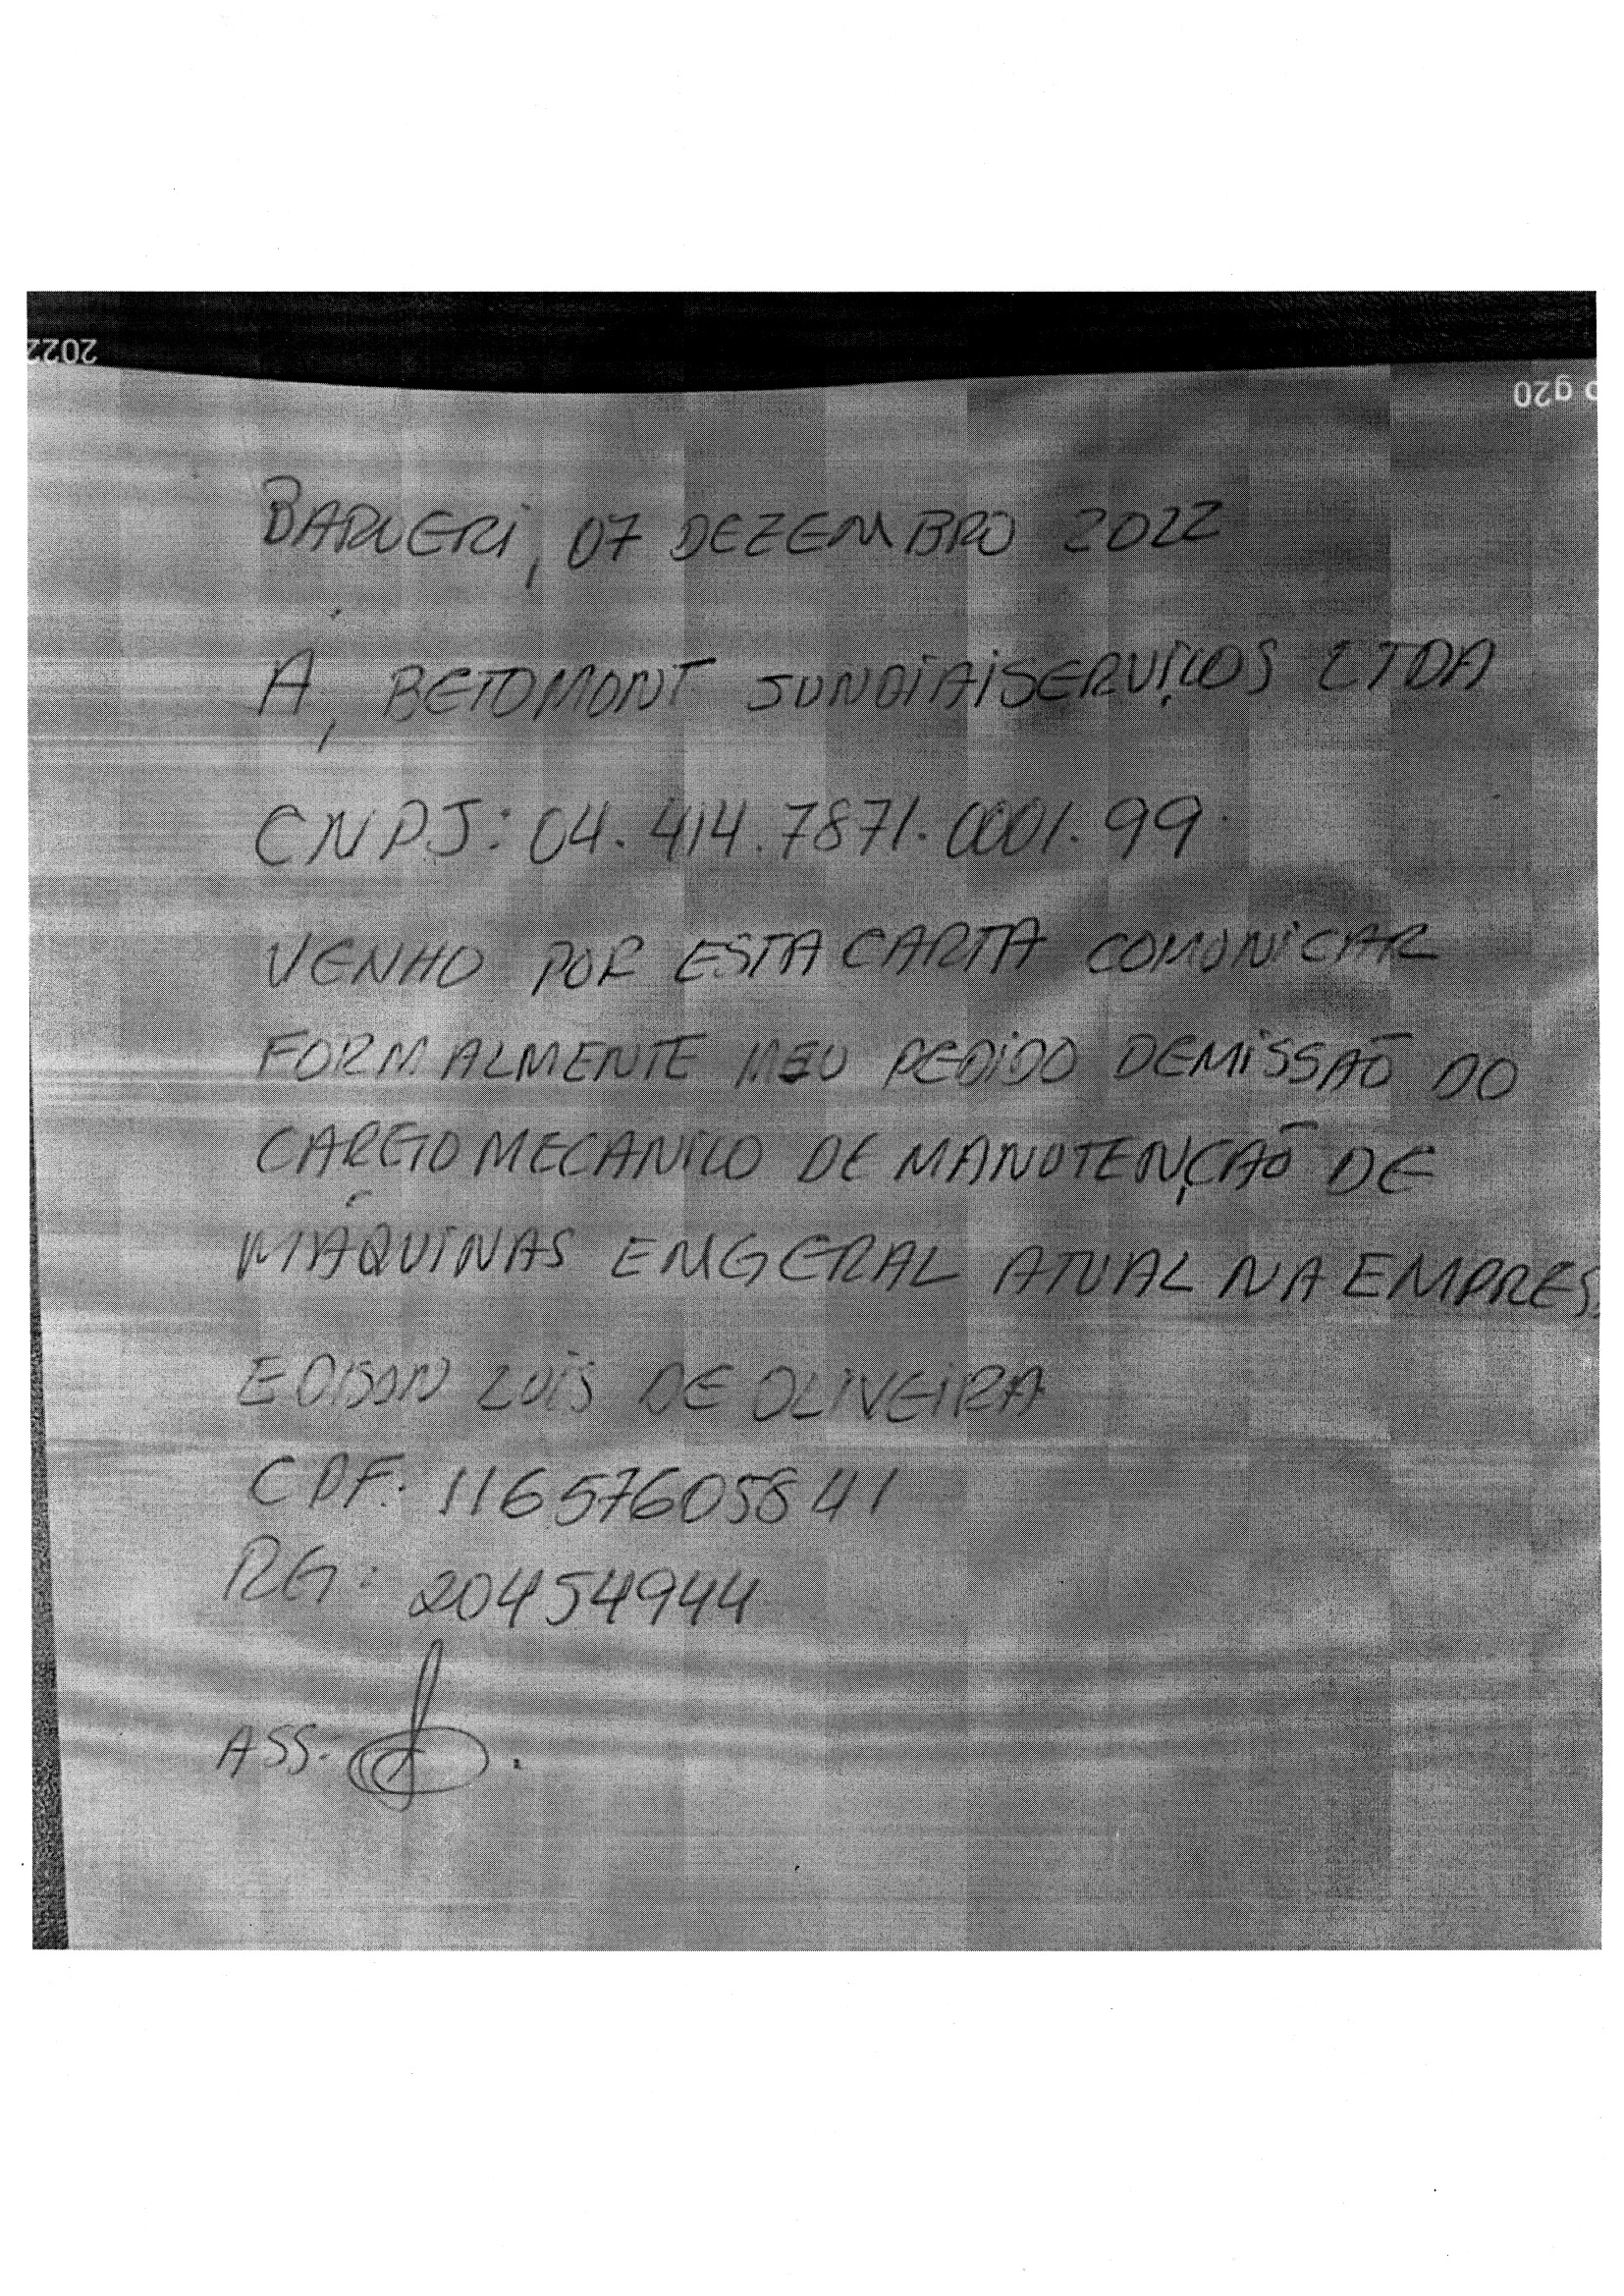 2022
o g20
BARUERI, 07 DEZEMBRO 2022
A, BETOMONT JUNDIAISERVIÇOS LTDA
CNPJ: 04.414.7871.0001.99
VENHO POR ESTA CARTA COMUNICAR
FORMALMENTE MEU PEDIDO DEMISSÃO DO
CARGO MECANICO DE MANUTENÇÃO DE
MÁQUINAS EMGERAL ATUAL NA EMPRES
EDISON LUIS DE OLIVEIRA
CPF: 11657605841
RG: 20454944
ASS.